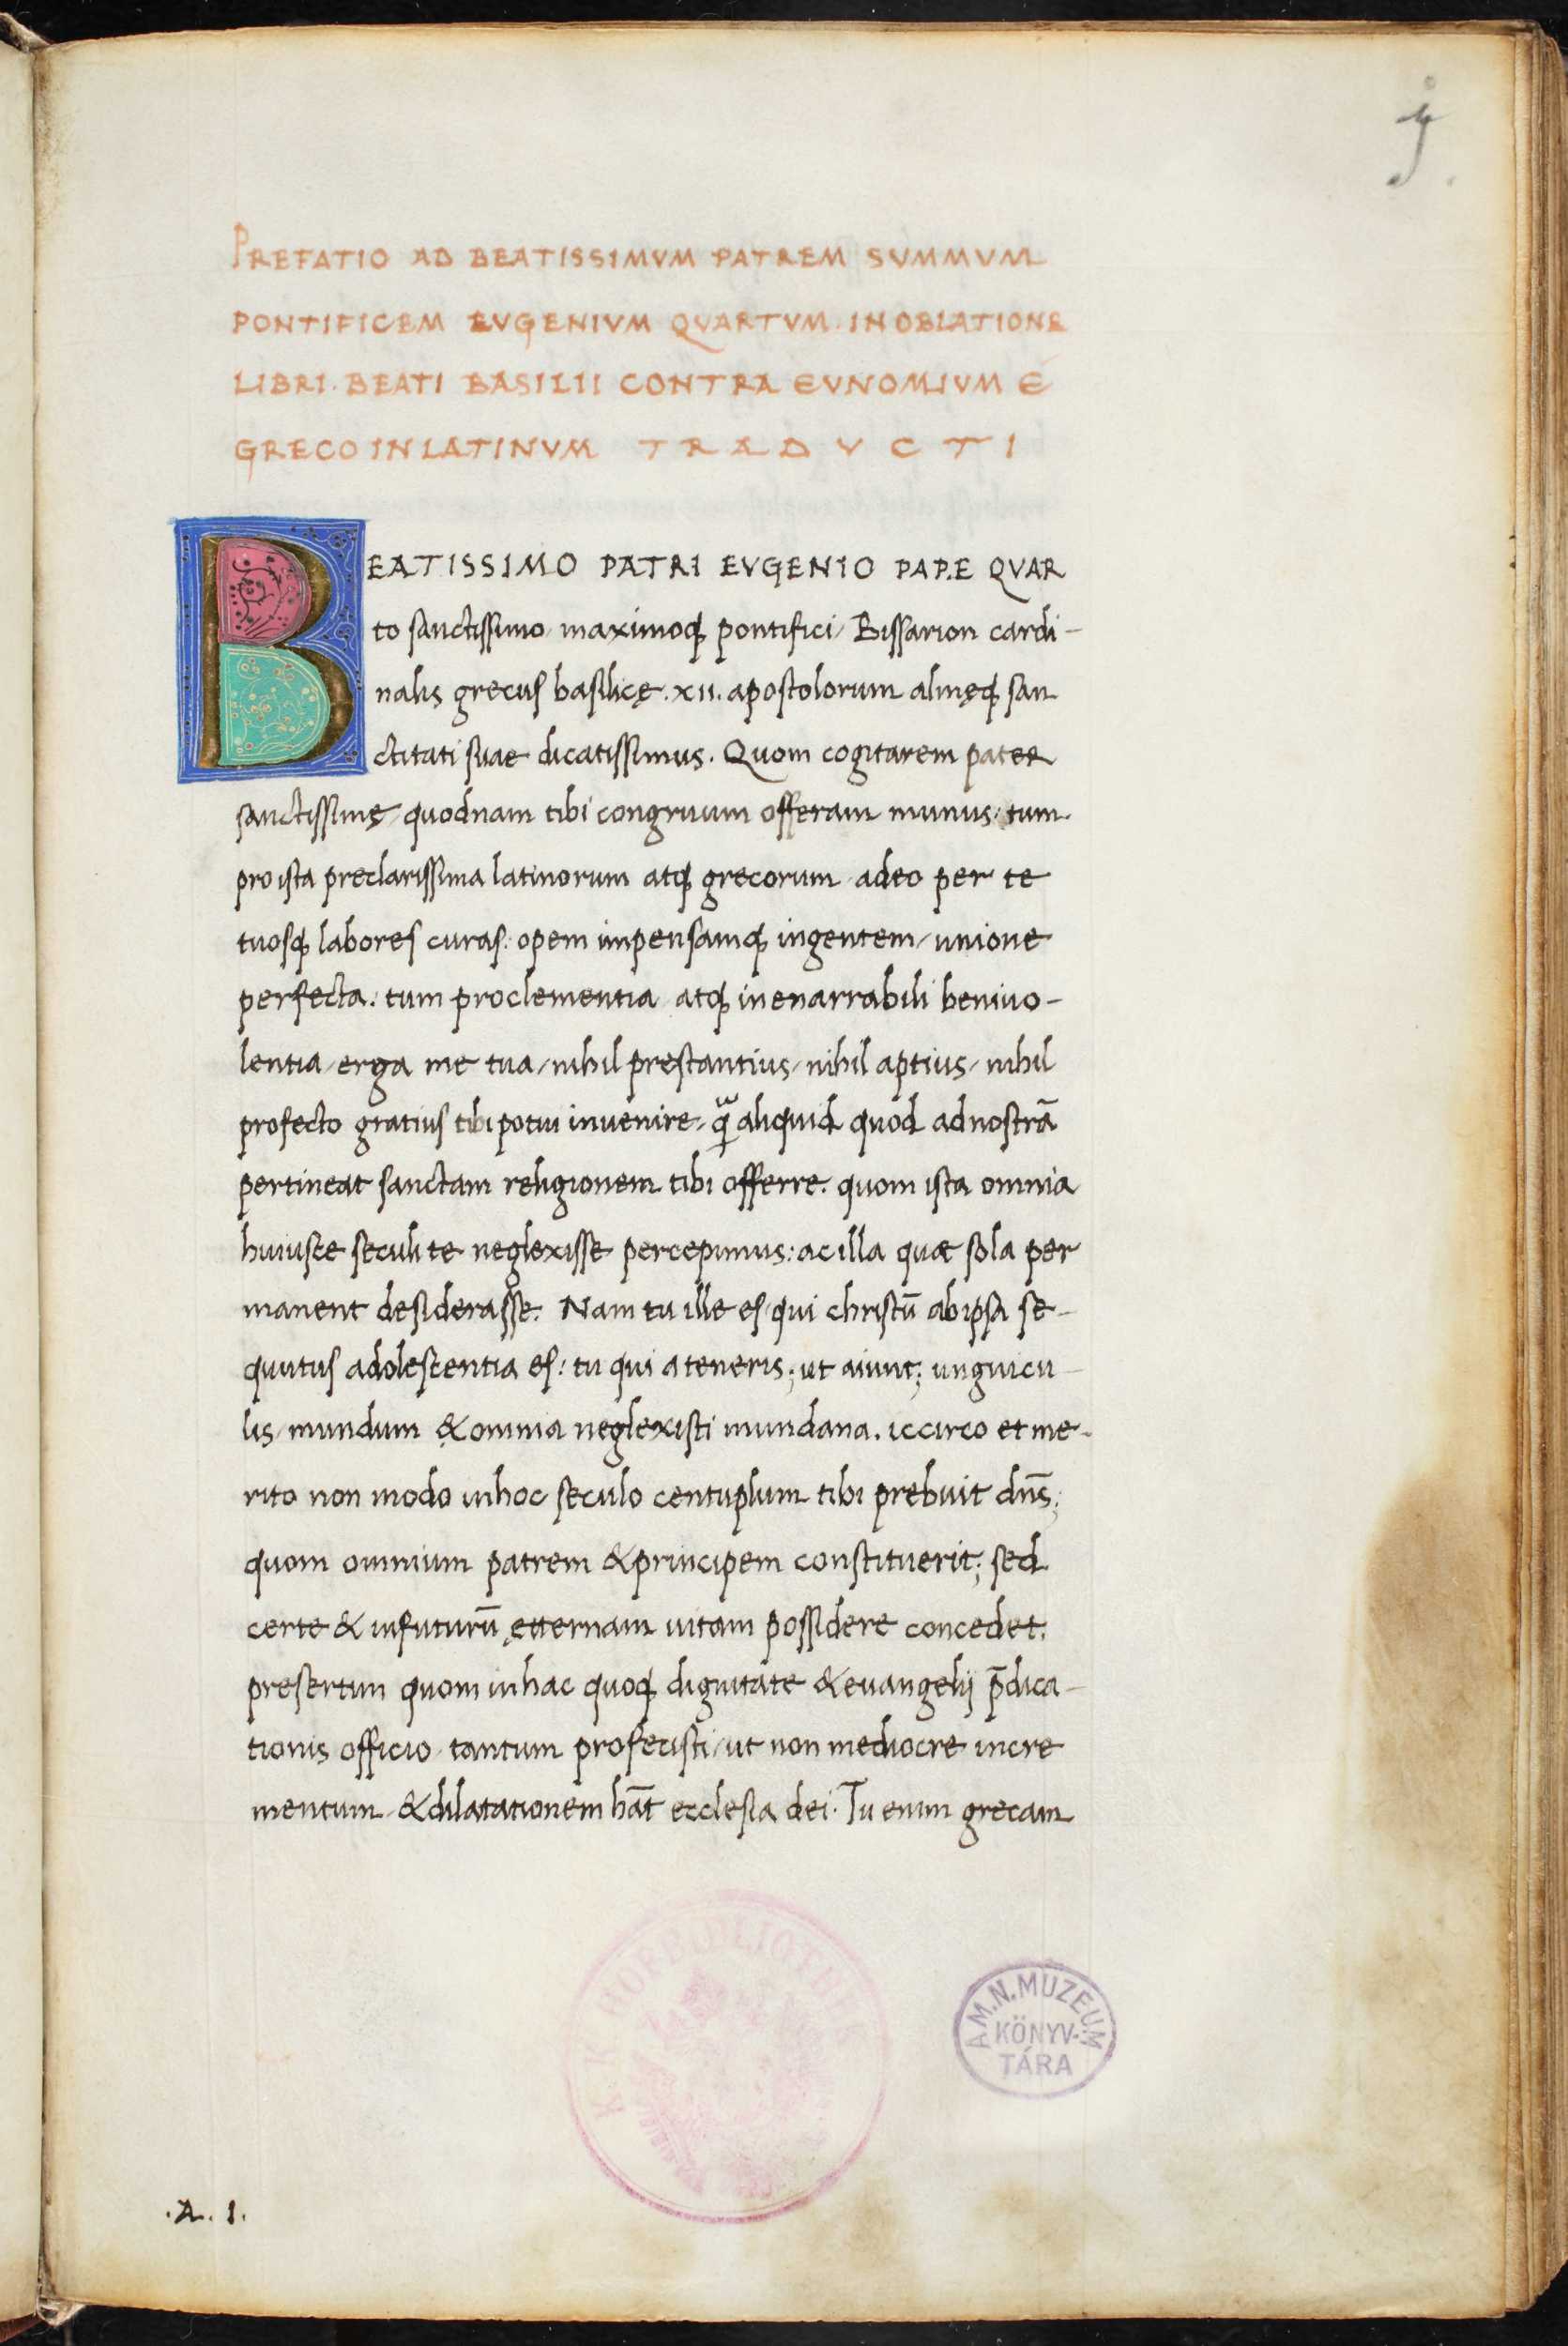 PREFATIO AD BEATISSIMVM PATREM SVMMVM
PONTIFICEM EVGENIVM QVARTVM · IN OBLATIONE
LIBRI · BEATI BASILII CONTRA EVNOMIVM E
GRECO IN LATINVM TRADVCTI
BEATISSIMO PATRI EVGENIO PAPE QVAR
to sanctissimo maximoqꝫ pontifici / Bissarion cardi-
nalis grecus basilicę · xii · apostolorum almęqꝫ san
ctitati suae dicatissimus. Quom cogitarem pater
sanctissimę / quodnam tibi congruum offeram munus / tum
pro ista preclarissima latinorum atqꝫ grecorum adeo per te
tuosqꝫ labores curas · opem impensamqꝫ ingentem / unione
perfecta: tum pro clementia atqꝫ inenarrabili beniuo-
lentia / erga me tua / nihil prestantius / nihil aptius / nihil
profecto gratius tibi potui inuenire / qᷓ aliquid quod ad nostrā
pertineat sanctam religionem tibi offerre. quom ista omnia
huiusce seculi te neglexisse percepimus: ac illa quae sola per
manent desiderasse. Nam tu ille es / qui christū ab ipsa se-
quutus adolescentia es: tu qui a teneris; ut aiunt; unguicu-
lis / mundum & omnia neglexisti mundana. iccirco et me-
rito non modo in hoc seculo centuplum tibi prebuit dn̄s;
quom omnium patrem & principem constituerit; sed
certe & in futurū ęternam uitam possidere concedet.
presertim quom in hac quoqꝫ dignitate & euangelij p̄dica-
tionis officio tantum profecisti / ut non mediocre incre
mentum / & dilatationem hāt ecclesia dei. Tu enim grecam
K. K. HOFBIBLIOTHEK
A M. N. MUZEUM
KÖNYV-
TÁRA
.A. 1.